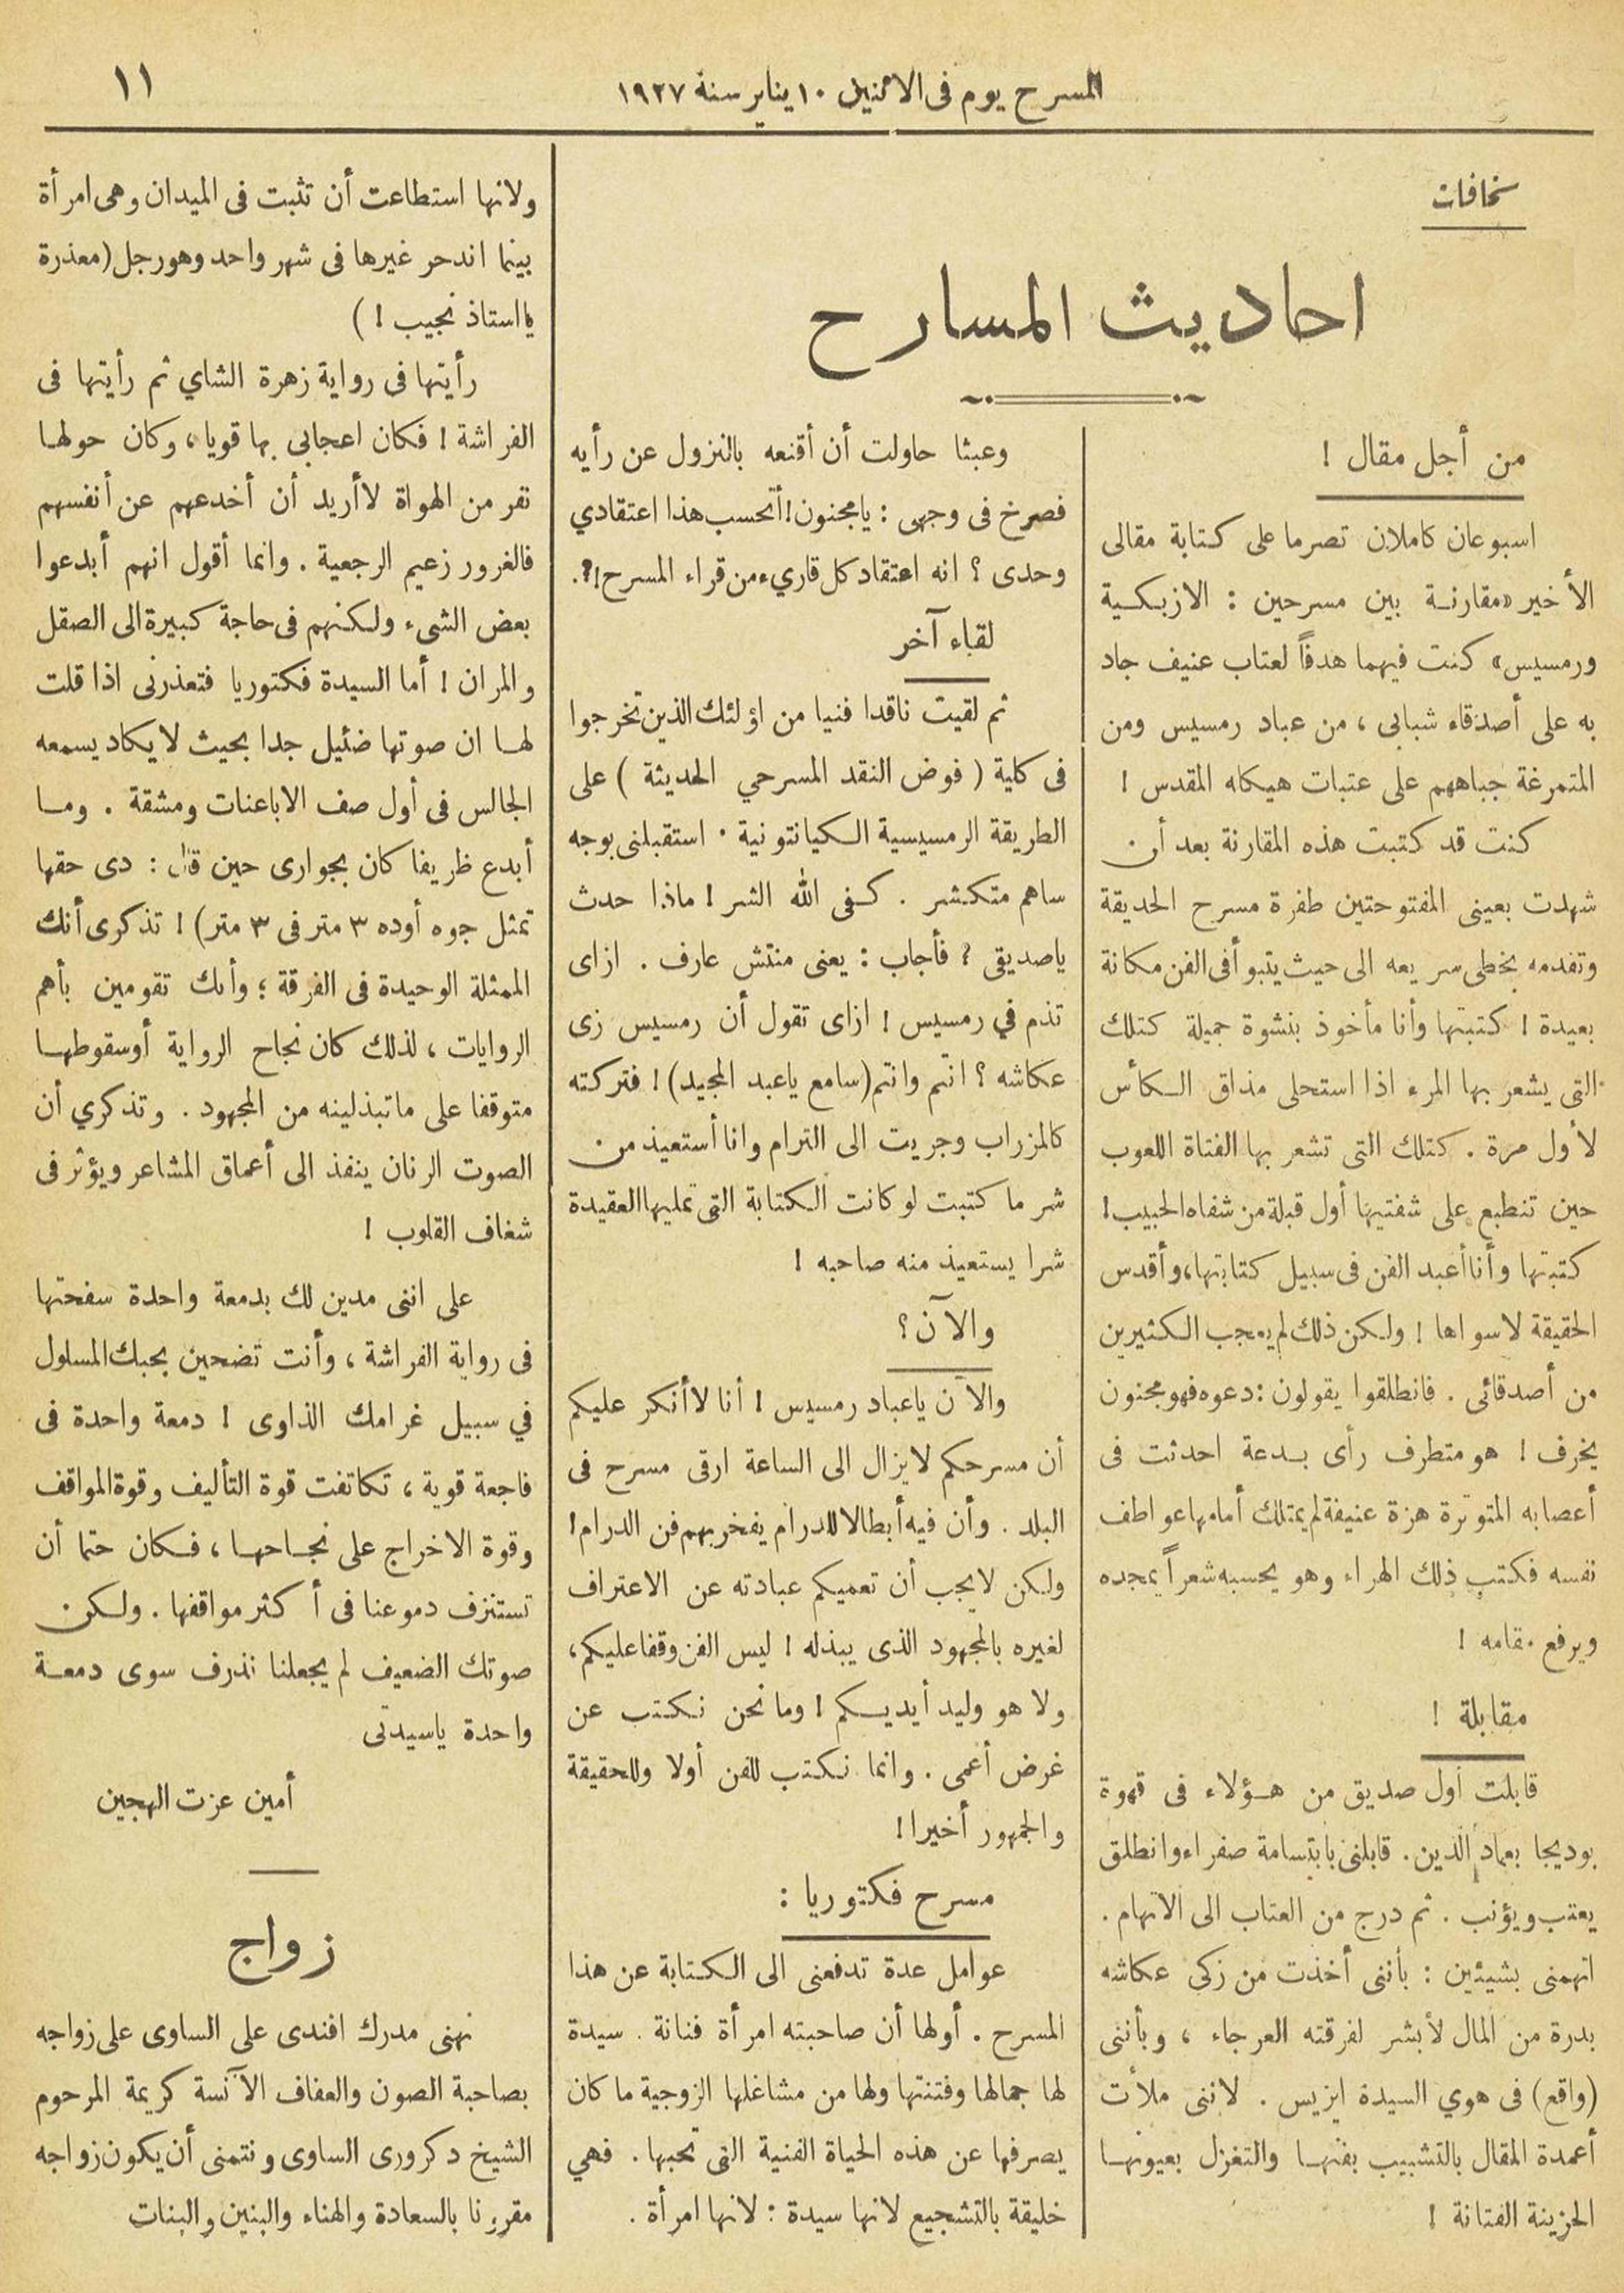 المسرح يوم فى الاثنين ١٠ يناير سنة ١٩٢٧
١١
سخافات
احاديث المسارح
من أجل مقال !
اسبوعان كاملان تصرما على كتابة مقالى
الأخير «مقارنة بين مسرحين : الازبكية
ورمسيس» كنت فيهما هدفاً لعتاب عنيف جاد
به على أصدقاء شبابى ، من عباد رمسيس ومن
المتمرغة جباههم على عتبات هيكله المقدس !
كنت قد كتبت هذه المقارنة بعد أن
شهدت بعينى المفتوحتين طفرة مسرح الحديقة
وتقدمه بخطى سريعه الى حيث يتبوأ فى الفن مكانة
بعيدة ! كتبتها وأنا مأخوذ بنشوة جميلة كتلك
التى يشعر بها المرء اذا استحلى مذاق الكأس
لأول مرة . كتلك التى تشعر بها الفتاة اللعوب
حين تنطبع على شفتيها أول قبلة من شفاه الحبيب !
كتبتها وأنا أعبد الفن فى سبيل كتابتها، وأقدس
الحقيقة لا سواها ! ولكن ذلك لم يعجب الكثيرين
من أصدقائى . فانطلقوا يقولون : دعوه فهو مجنون
يخرف ! هو متطرف رأى بدعة احدثت فى
أعصابه المتوترة هزة عنيفة لم يمتلك أمامها عواطف
نفسه فكتب ذلك الهراء وهو يحسبه شعراً يمجده
ويرفع مقامه !
مقابلة !
قابلت أول صديق من هؤلاء فى قهوة
بوديجا بعماد الدين . قابلنى بابتسامة صفراء وانطلق
يعتب ويؤنب . ثم درج من العتاب الى الاتهام .
اتهمنى بشيئين : بأننى أخذت من زكى عكاشه
بدرة من المال لأبشر لفرقته العرجاء ، وبأننى
(واقع) فى هوي السيدة ايزيس . لاننى ملأت
أعمدة المقال بالتشبيب بفنها والتغزل بعيونها
الحزينة الفتانة !
وعبثا حاولت أن أقنعه بالنزول عن رأيه
فصرخ فى وجهى : يا مجنون ! أتحسب هذا اعتقادي
وحدى ؟ انه اعتقاد كل قاريء من قراء المسرح !؟.
لقاء آخر
ثم لقيت ناقدا فنيا من اؤلئك الذين تخرجوا
فى كلية ( فوض النقد المسرحي الحديثة ) على
الطريقة الرمسيسية الكيانتونية . استقبلنى بوجه
ساهم متكشر . كفى الله الشر ! ماذا حدث
ياصديقى ؟ فأجاب : يعنى منتش عارف . ازاى
تذم في رمسيس ! ازاى تقول أن رمسيس زى
عكاشه ؟ انتم وانتم (سامع ياعبد المجيد) ! فتركته
كالمزراب وجريت الى الترام وانا أستعيذ من
شر ما كتبت لو كانت الكتابة التى تمليها العقيدة
شرا يستعيذ منه صاحبه !
والآن ؟
والآن ياعباد رمسيس ! أنا لا أنكر عليكم
أن مسرحكم لايزال الى الساعة ارقى مسرح فى
البلد . وأن فيه أبطالا للدرام يفخر بهم فن الدرام !
ولكن لا يجب أن تعميكم عبادته عن الاعتراف
لغيره بالمجهود الذى يبذله ! ليس الفن وقفا عليكم،
ولا هو وليد أيديكم ! وما نحن نكتب عن
غرض أعمى . وانما نكتب للفن أولا وللحقيقة
والجمهور أخيرا !
مسرح فكتوريا :
عوامل عدة تدفعنى الى الكتابة عن هذا
المسرح . أولها أن صاحبته امرأة فنانة . سيدة
لها جمالها وفتنتها ولها من مشاغلها الزوجية ما كان
يصرفها عن هذه الحياة الفنية التى تحبها . فهي
خليقة بالتشجيع لانها سيدة : لانها امرأة .
ولانها استطاعت أن تثبت فى الميدان وهى امرأة
بينما اندحر غيرها فى شهر واحد وهو رجل (معذرة
يا استاذ نجيب ! )
رأيتها فى رواية زهرة الشاي ثم رأيتها فى
الفراشة ! فكان اعجابى بها قويا ، وكان حولها
نفر من الهواة لا أريد أن أخدعهم عن أنفسهم
فالغرور زعيم الرجعية . وانما أقول انهم أبدعوا
بعض الشىء ولكنهم فى حاجة كبيرة الى الصقل
والمران ! أما السيدة فكتوريا فتعذرنى اذا قلت
لها ان صوتها ضئيل جدا بحيث لا يكاد يسمعه
الجالس فى أول صف الا باعنات ومشقة . وما
أبدع ظريفا كان بجوارى حين قال : دى حقها
تمثل جوه أوده ٣ متر فى ٣ متر) ! تذكرى أنك
الممثلة الوحيدة فى الفرقة ؛ وأنك تقومين بأهم
الروايات ، لذلك كان نجاح الرواية أو سقوطها
متوقفا على ما تبذلينه من المجهود . وتذكري أن
الصوت الرنان ينفذ الى أعماق المشاعر ويؤثر فى
شغاف القلوب !
على اننى مدين لك بدمعة واحدة سفحتها
فى رواية الفراشة ، وأنت تضحين بحبك المسلول
في سبيل غرامك الذاوى ! دمعة واحدة فى
فاجعة قوية ، تكاتفت قوة التأليف وقوة المواقف
وقوة الاخراج على نجاحها ، فكان حتما أن
تستنزف دموعنا فى أكثر مواقفها . ولكن
صوتك الضعيف لم يجعلنا نذرف سوى دمعة
واحدة ياسيدتى
أمين عزت الهجين
زواج
نهنى مدرك افندى على الساوى على زواجه
بصاحبة الصون والعفاف الآنسة كريمة المرحوم
الشيخ دكرورى الساوى ونتمنى أن يكون زواجه
مقرونا بالسعادة والهناء والبنين والبنات